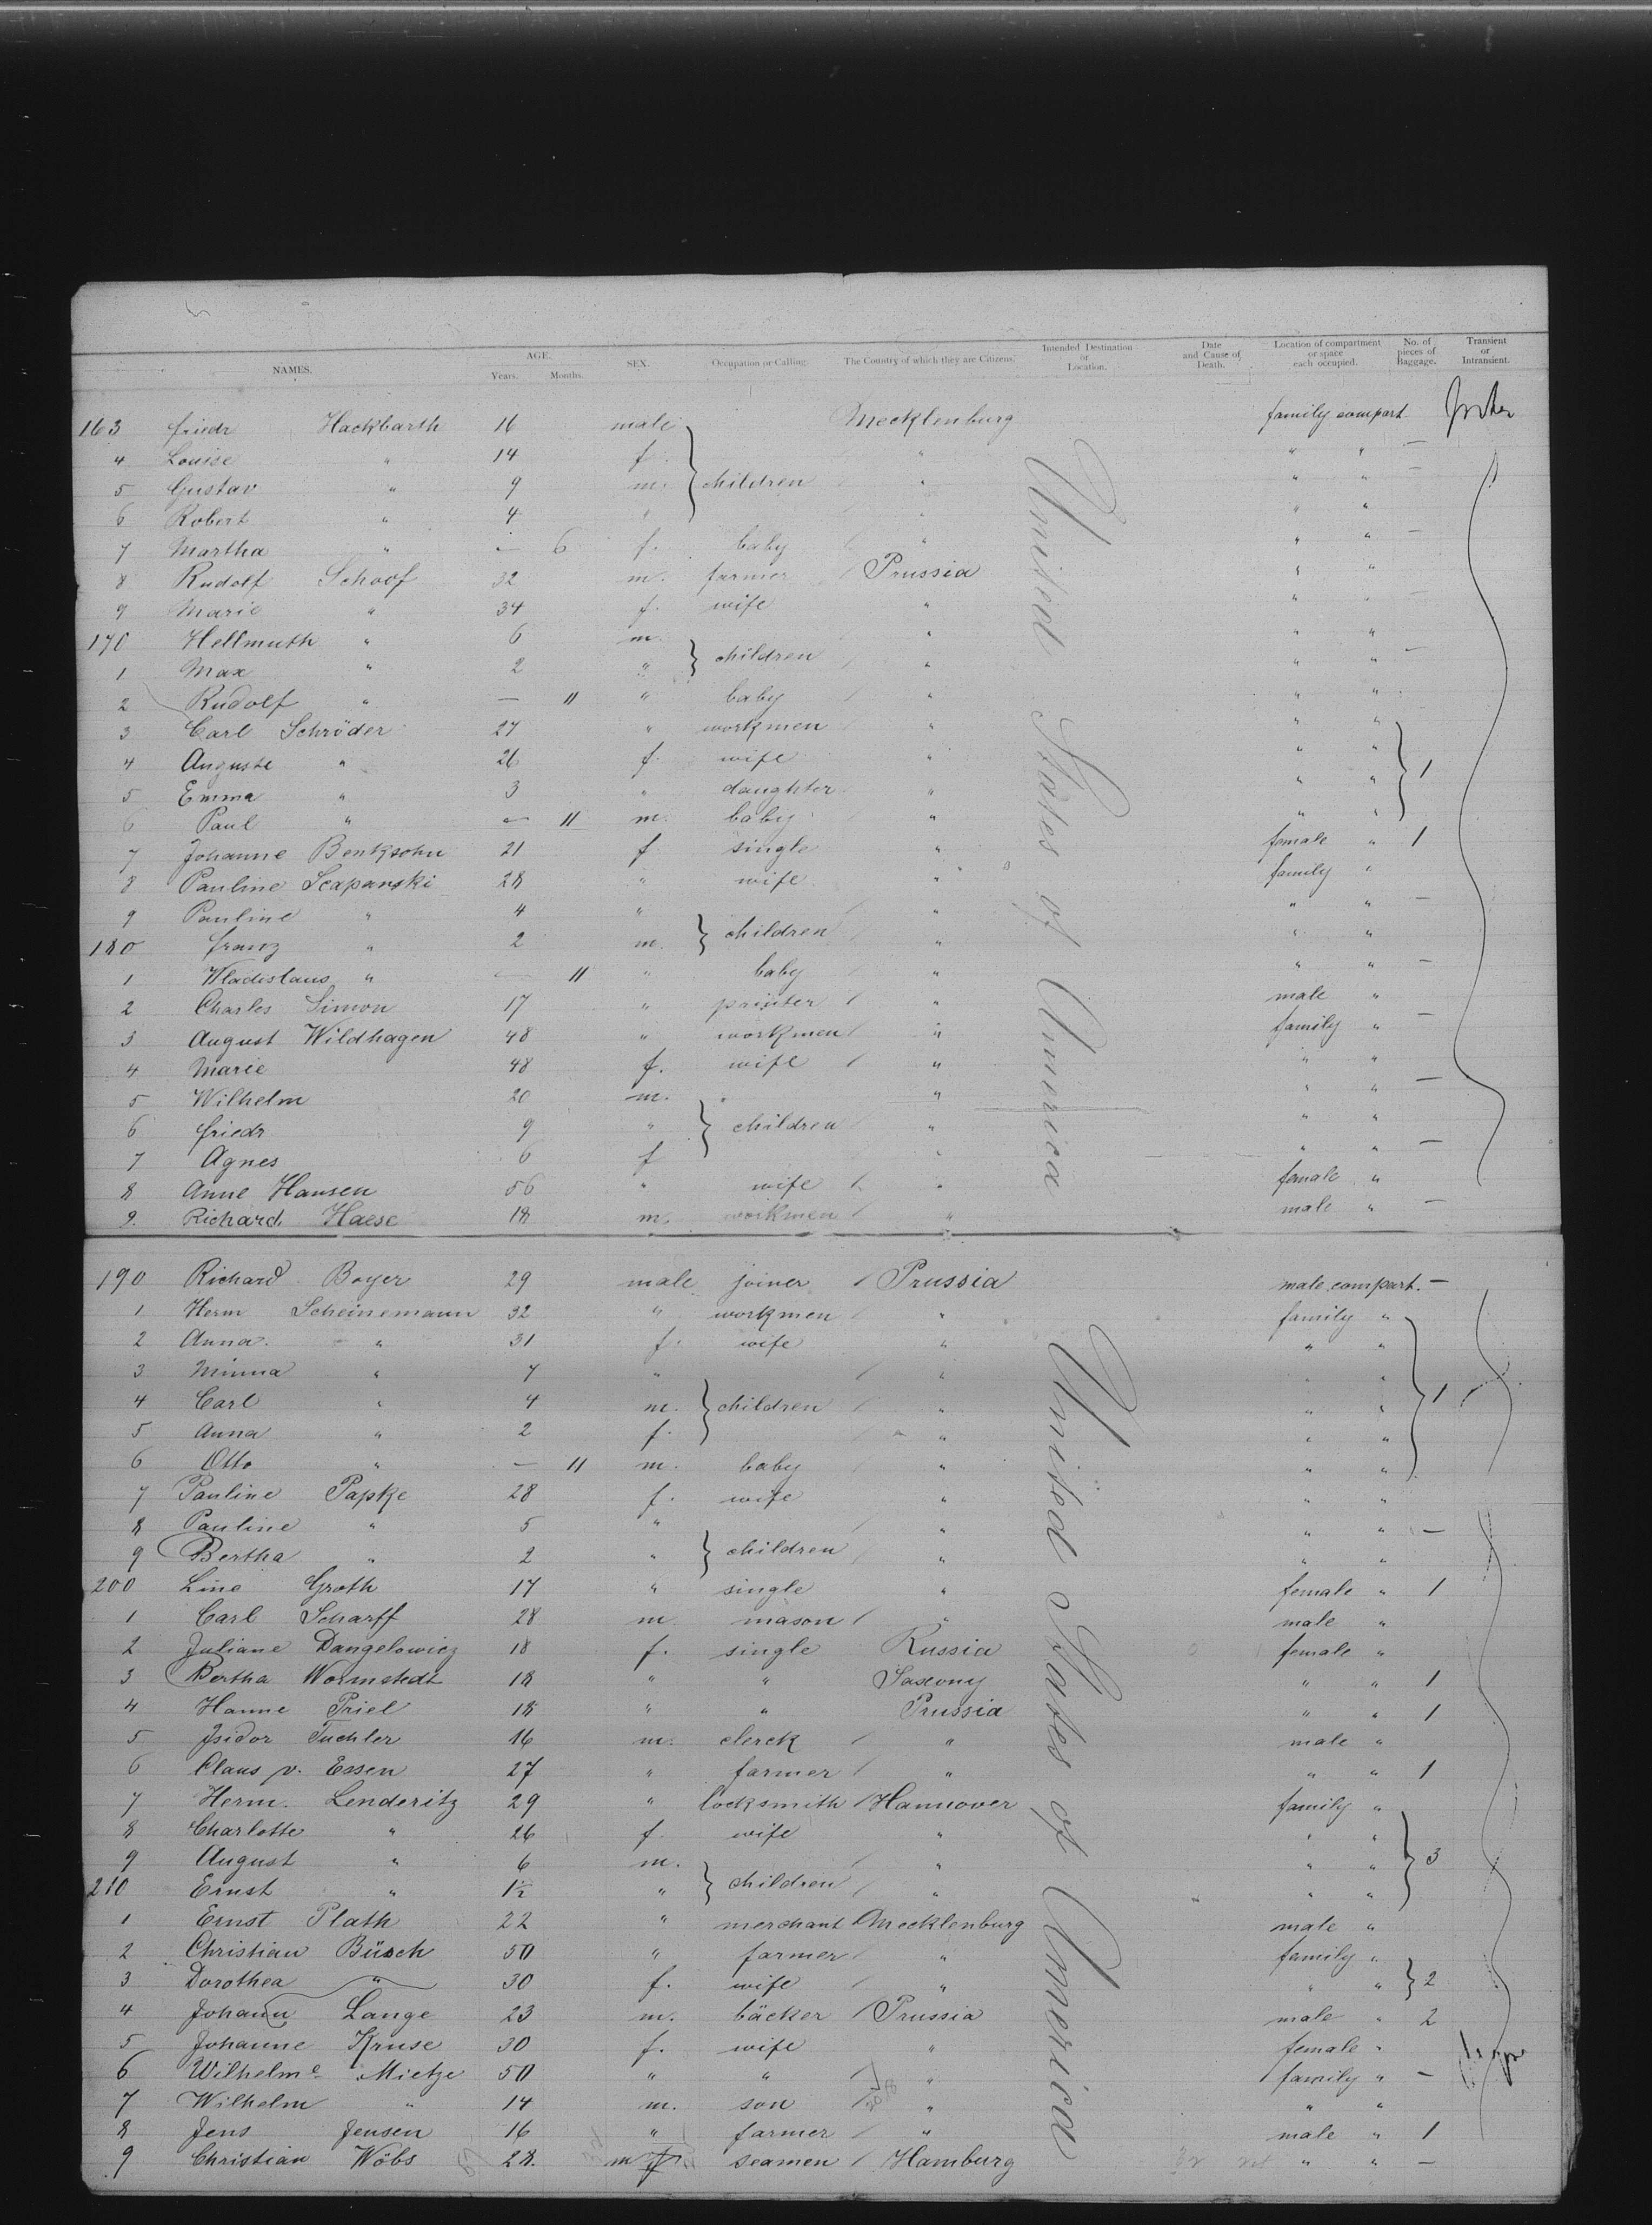 NAMES. AGE. Years. Months. SEX. Occupation or Calling. The Country of which they are Citizens. Intended Destination or Location. Date and Cause of Death. Location of compartment or space each occupied. No. of pieces of Baggage. Transient or Intransient.
163 friedr Hackbarth 16 male Mecklenburg family compart
4 Louise " 14 f. " " " —
5 Gustav " 9 m. } children " " " —
6 Robert " 4 " " " "
7 Martha " — 6 f. baby " " " —
8 Rudolf Schoof 32 m. farmer / Prussia " "
9 Marie " 34 f. wife " " " —
170 Hellmuth " 6 m. " " "
1 Max " 2 " } children / " " " —
2 Rudolf " — 11 " baby / " " "
3 Carl Schröder 27 " workmen / " " "
4 Auguste " 26 f. wife " " " } 1
5 Emma " 3 " daughter " " "
6 Paul " — 11 m. baby " " "
7 Johanne Benksohn 21 f single " female " 1
8 Pauline Scapanski 28 " wife " family "
9 Pauline " 4 " " " " —
180 franz " 2 m. } children / " " "
1 Wladislaus " — 11 " baby " " " —
2 Charles Simon 17 " painter / " male "
3 August Wildhagen 48 " workmen / " family " —
4 Marie 48 f. wife / " " "
5 Wilhelm 20 m. " " " —
6 friedr 9 " } children " " "
7 Agnes 6 f " " " —
8 Anne Hansen 56 " wife / " female "
9. Richard Haese 18 m. workmen / " male " —
United States of America
190 Richard Boyer 29 male joiner / Prussia male compart. —
1 Herm Scheinemann 32 " workmen / " family "
2 Anna " 31 f. wife " " "
3 Minna " 7 " / " " "
4 Carl " 4 m. } children / " " " } 1
5 Anna " 2 f. " " "
6 Otto " — 11 m. baby / " " "
7 Pauline Papke 28 f. wife " " "
8 Pauline " 5 " / " " " —
9 Bertha " 2 " } children / " " "
200 Line Groth 17 " single " female " 1
1 Carl Scharff 28 m mason / " male "
2 Juliane Dangelowicz 18 f. single Russia female "
3 Bertha Wormstedt 18 " " Saxony " " 1
4 Hanne Priel 18 " " Prussia " " 1
5 Isidor Tuchler 16 m. clerck / " male "
6 Claus v. Essen 27 " farmer / " " " 1
7 Herm. Lenderitz 29 " locksmith / Hannover family "
8 Charlotte " 26 f. wife " " "
9 August " 6 m. / " " " } 3
210 Ernst " 1½ " } children / " " "
1 Ernst Plath 22 " merchant Mecklenburg male "
2 Christian Büsch 50 " farmer / " family "
3 Dorothea " 30 f. wife / " " " } 2
4 Johann Lange 23 m. bäcker / Prussia male " 2
5 Johanne Kruse 30 f. wife " female "
6 Wilhelme Mietze 50 " " / " family " —
7 Wilhelm " 14 m. son / " " "
8 Jens Jensen 16 " farmer / " male " 1
9 Christian Wöbs 28. m seamen / Hamburg " " —
United States of America